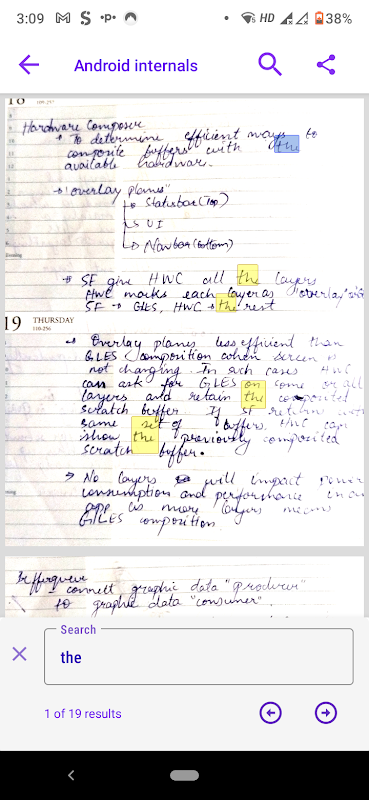 3:09
HD
38%
Android internals
18 109-257
Hardware Composer
• To determine efficient ways to
composite buffers with the
available hardware.
→ "overlay planes"
↳ Statusbar (Top)
↳ UI
↳ Navbar (bottom)
SF give HWC all the layers
HWC marks each layer as "overlay"
SF → GLES, HWC → the rest
19 THURSDAY
110-256
→ Overlay planes less efficient than
GLES composition when screen is
not changing. In such cases HWC
can ask for GLES on some or all
layers and retain the composited
scratch buffer. If SF returns with
same set of buffers, HWC can
show the previously composited
scratch buffer.
→ No layers will impact power
consumption and performance in an
app as more layers means
GLES composition
Bufferqueue
connect graphic data "producer"
to graphic data "consumer".
Search
the
1 of 19 results